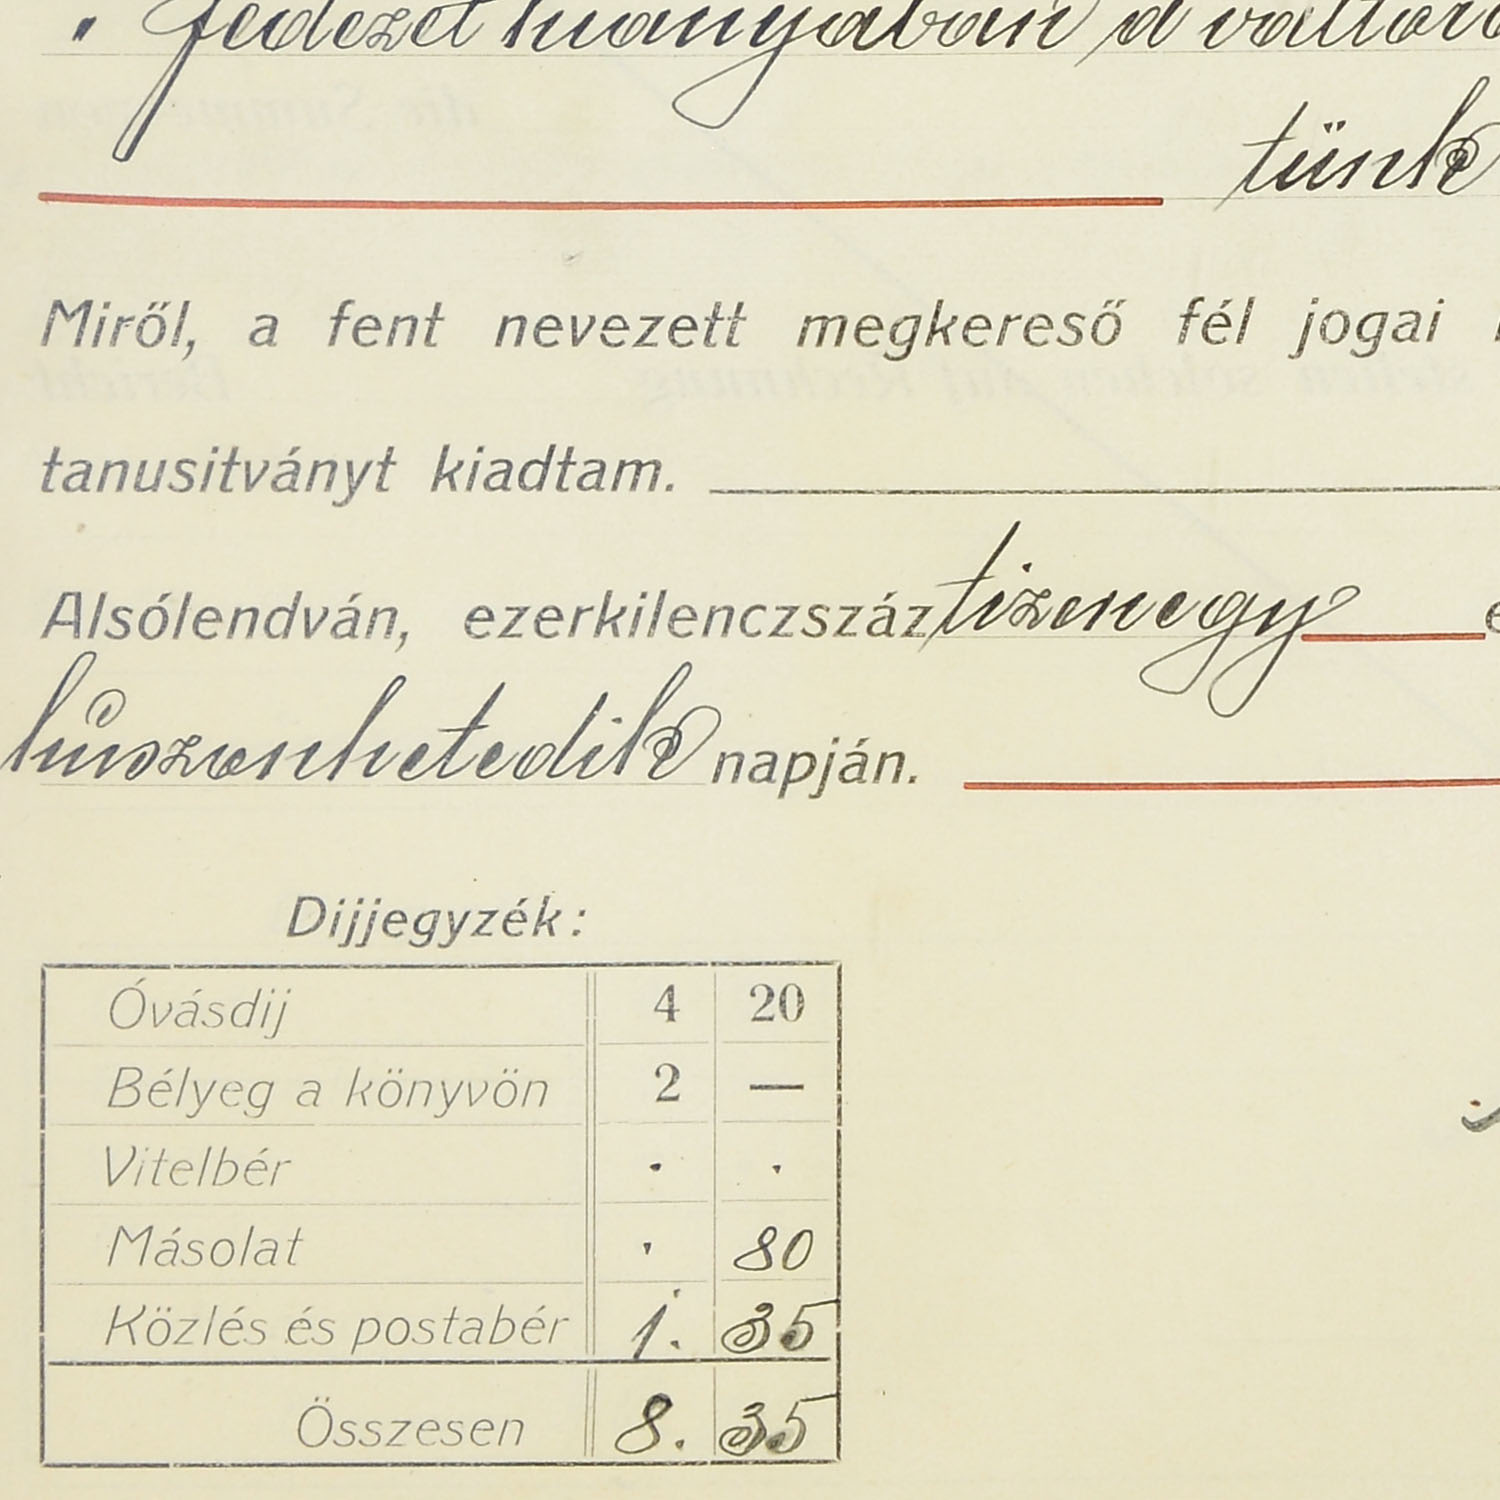 " fedezet hiányában a váltóra
tünk
Miről, a fent nevezett megkereső fél jogai
tanusitványt kiadtam.
Alsólendván, ezerkilenczszáz tizenegy
húszonhetedik napján.
Dijjegyzék:
Óvásdij 4 20
Bélyeg a könyvön 2 —
Vitelbér . .
Másolat . 80
Közlés és postabér 1. 35
Összesen 8. 35